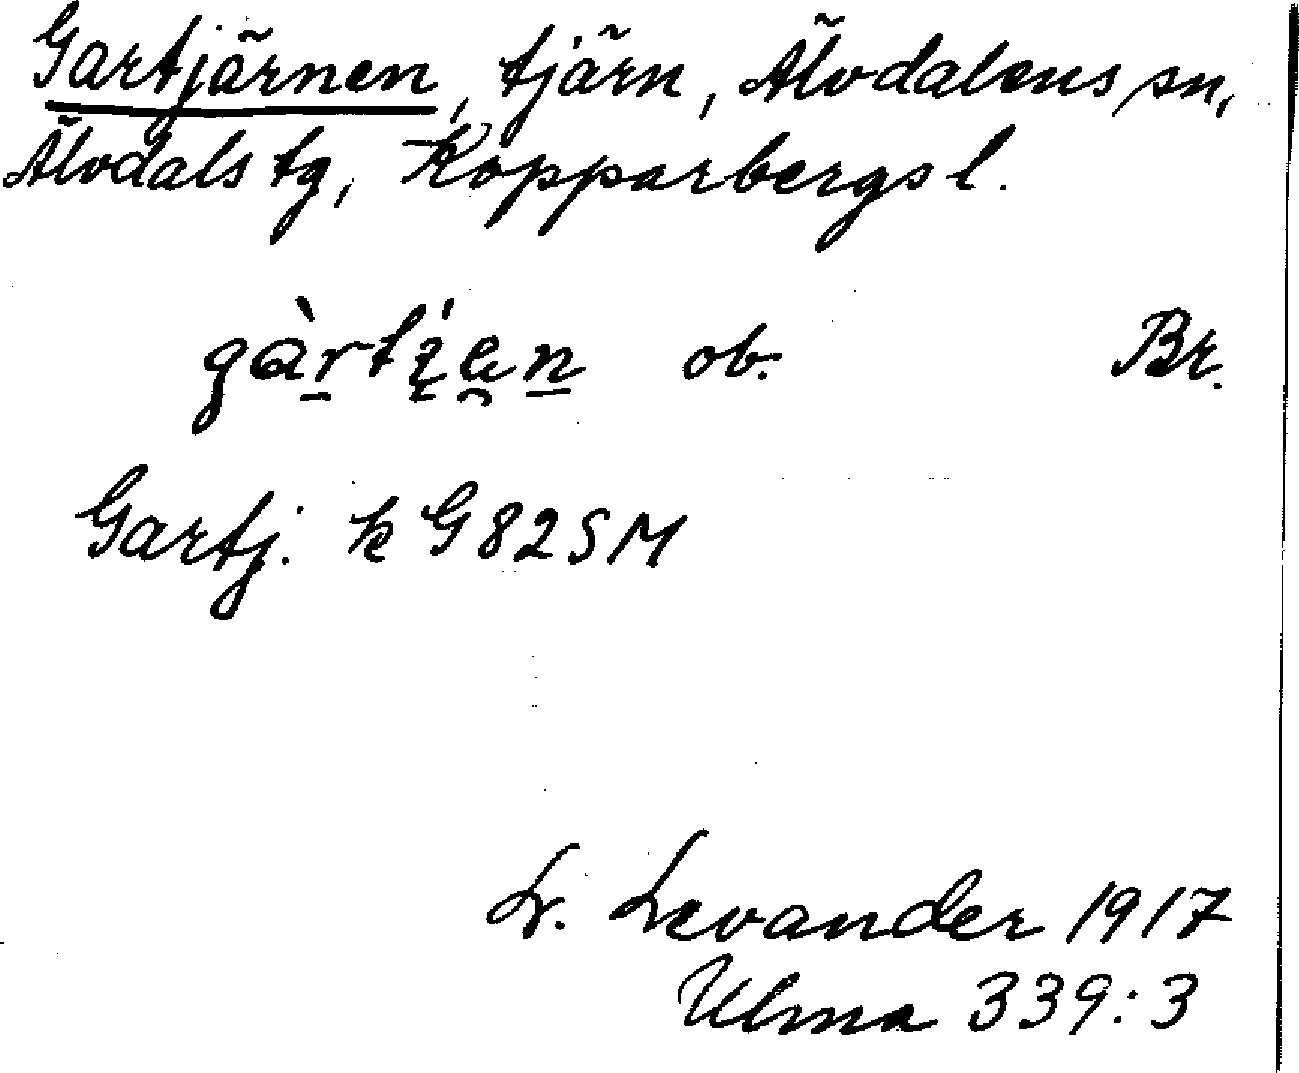 Gartjärnen, tjärn, Älvdalens sn,
Älvdals tg, Kopparbergs l.
ob. Br.
Gartj. k G 82 SM
L. Levander 1917
Ulma 339:3